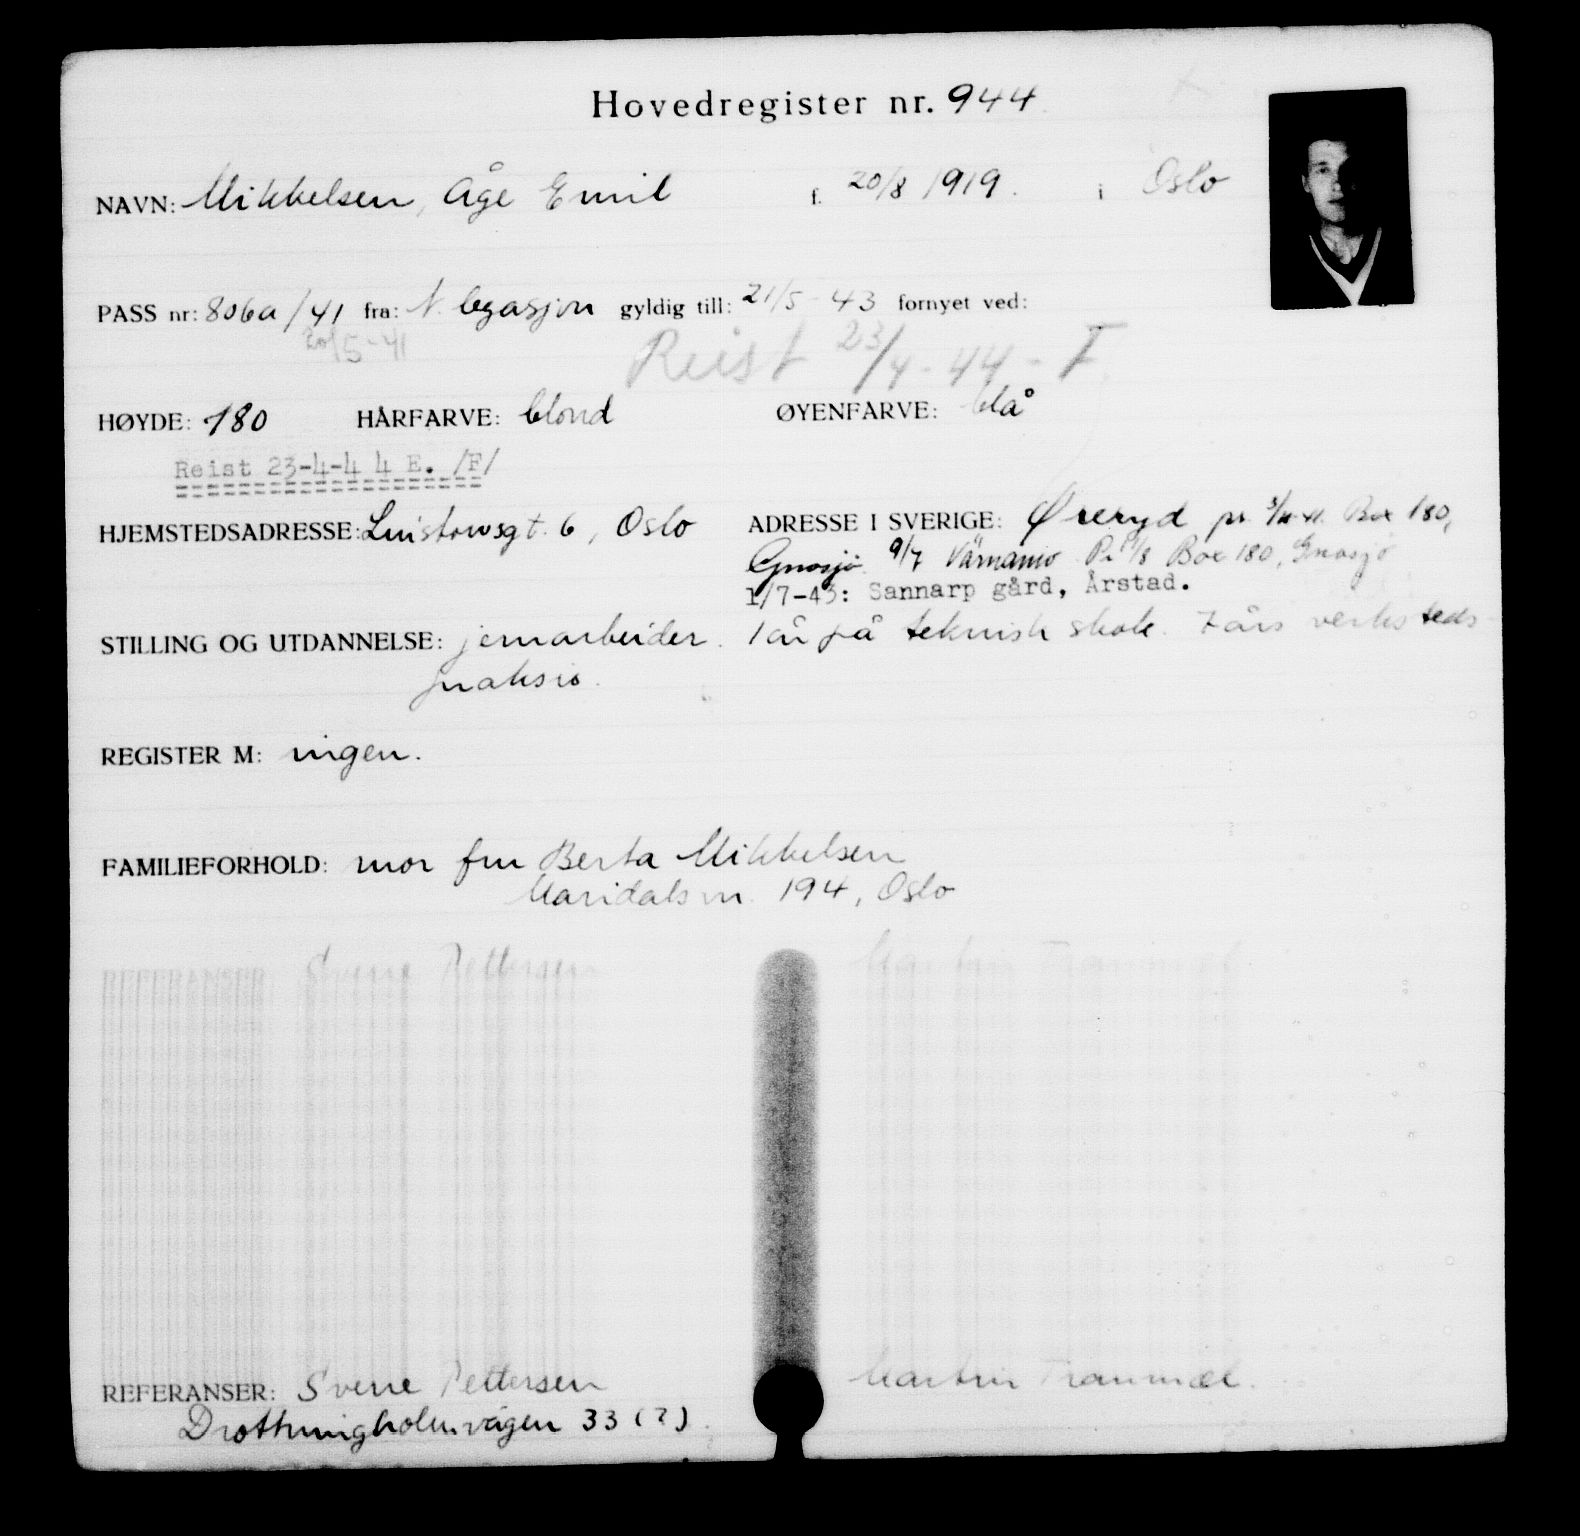 Hovedregister nr. 944
NAVN: Mikkelsen, Åge Emil f. 20/8 1919. i Oslo
PASS nr: 806a/41 fra: N. legasjon gyldig till: 21/5-43 fornyet ved:
20/5-41 Reist 23/4-44 - F.
HØYDE: 180 HÅRFARVE: blond ØYENFARVE: blå
Reist 23-4-4 4 E. /F/
HJEMSTEDSADRESSE: Linstowsgt. 6, Oslo ADRESSE I SVERIGE: Øreryd pr. Box 180,
Gnosjö. 9/7 Värnamo Pr 1/8 Box 180, Gnosjö
1/7-43: Sannarp gård, Årstad.
STILLING OG UTDANNELSE: jernarbeider. 1 år på teknisk skole. 7 års verksteds-
praksis.
REGISTER M: ingen.
FAMILIEFORHOLD: mor fru Berta Mikkelsen
Maridalsvn. 194, Oslo
REFERANSER: Sverre Pettersen Martin Tranmæl.
REFERANSER: Sverre Pettersen Martin Tranmæl.
Drottningholmsvägen 33 (?)